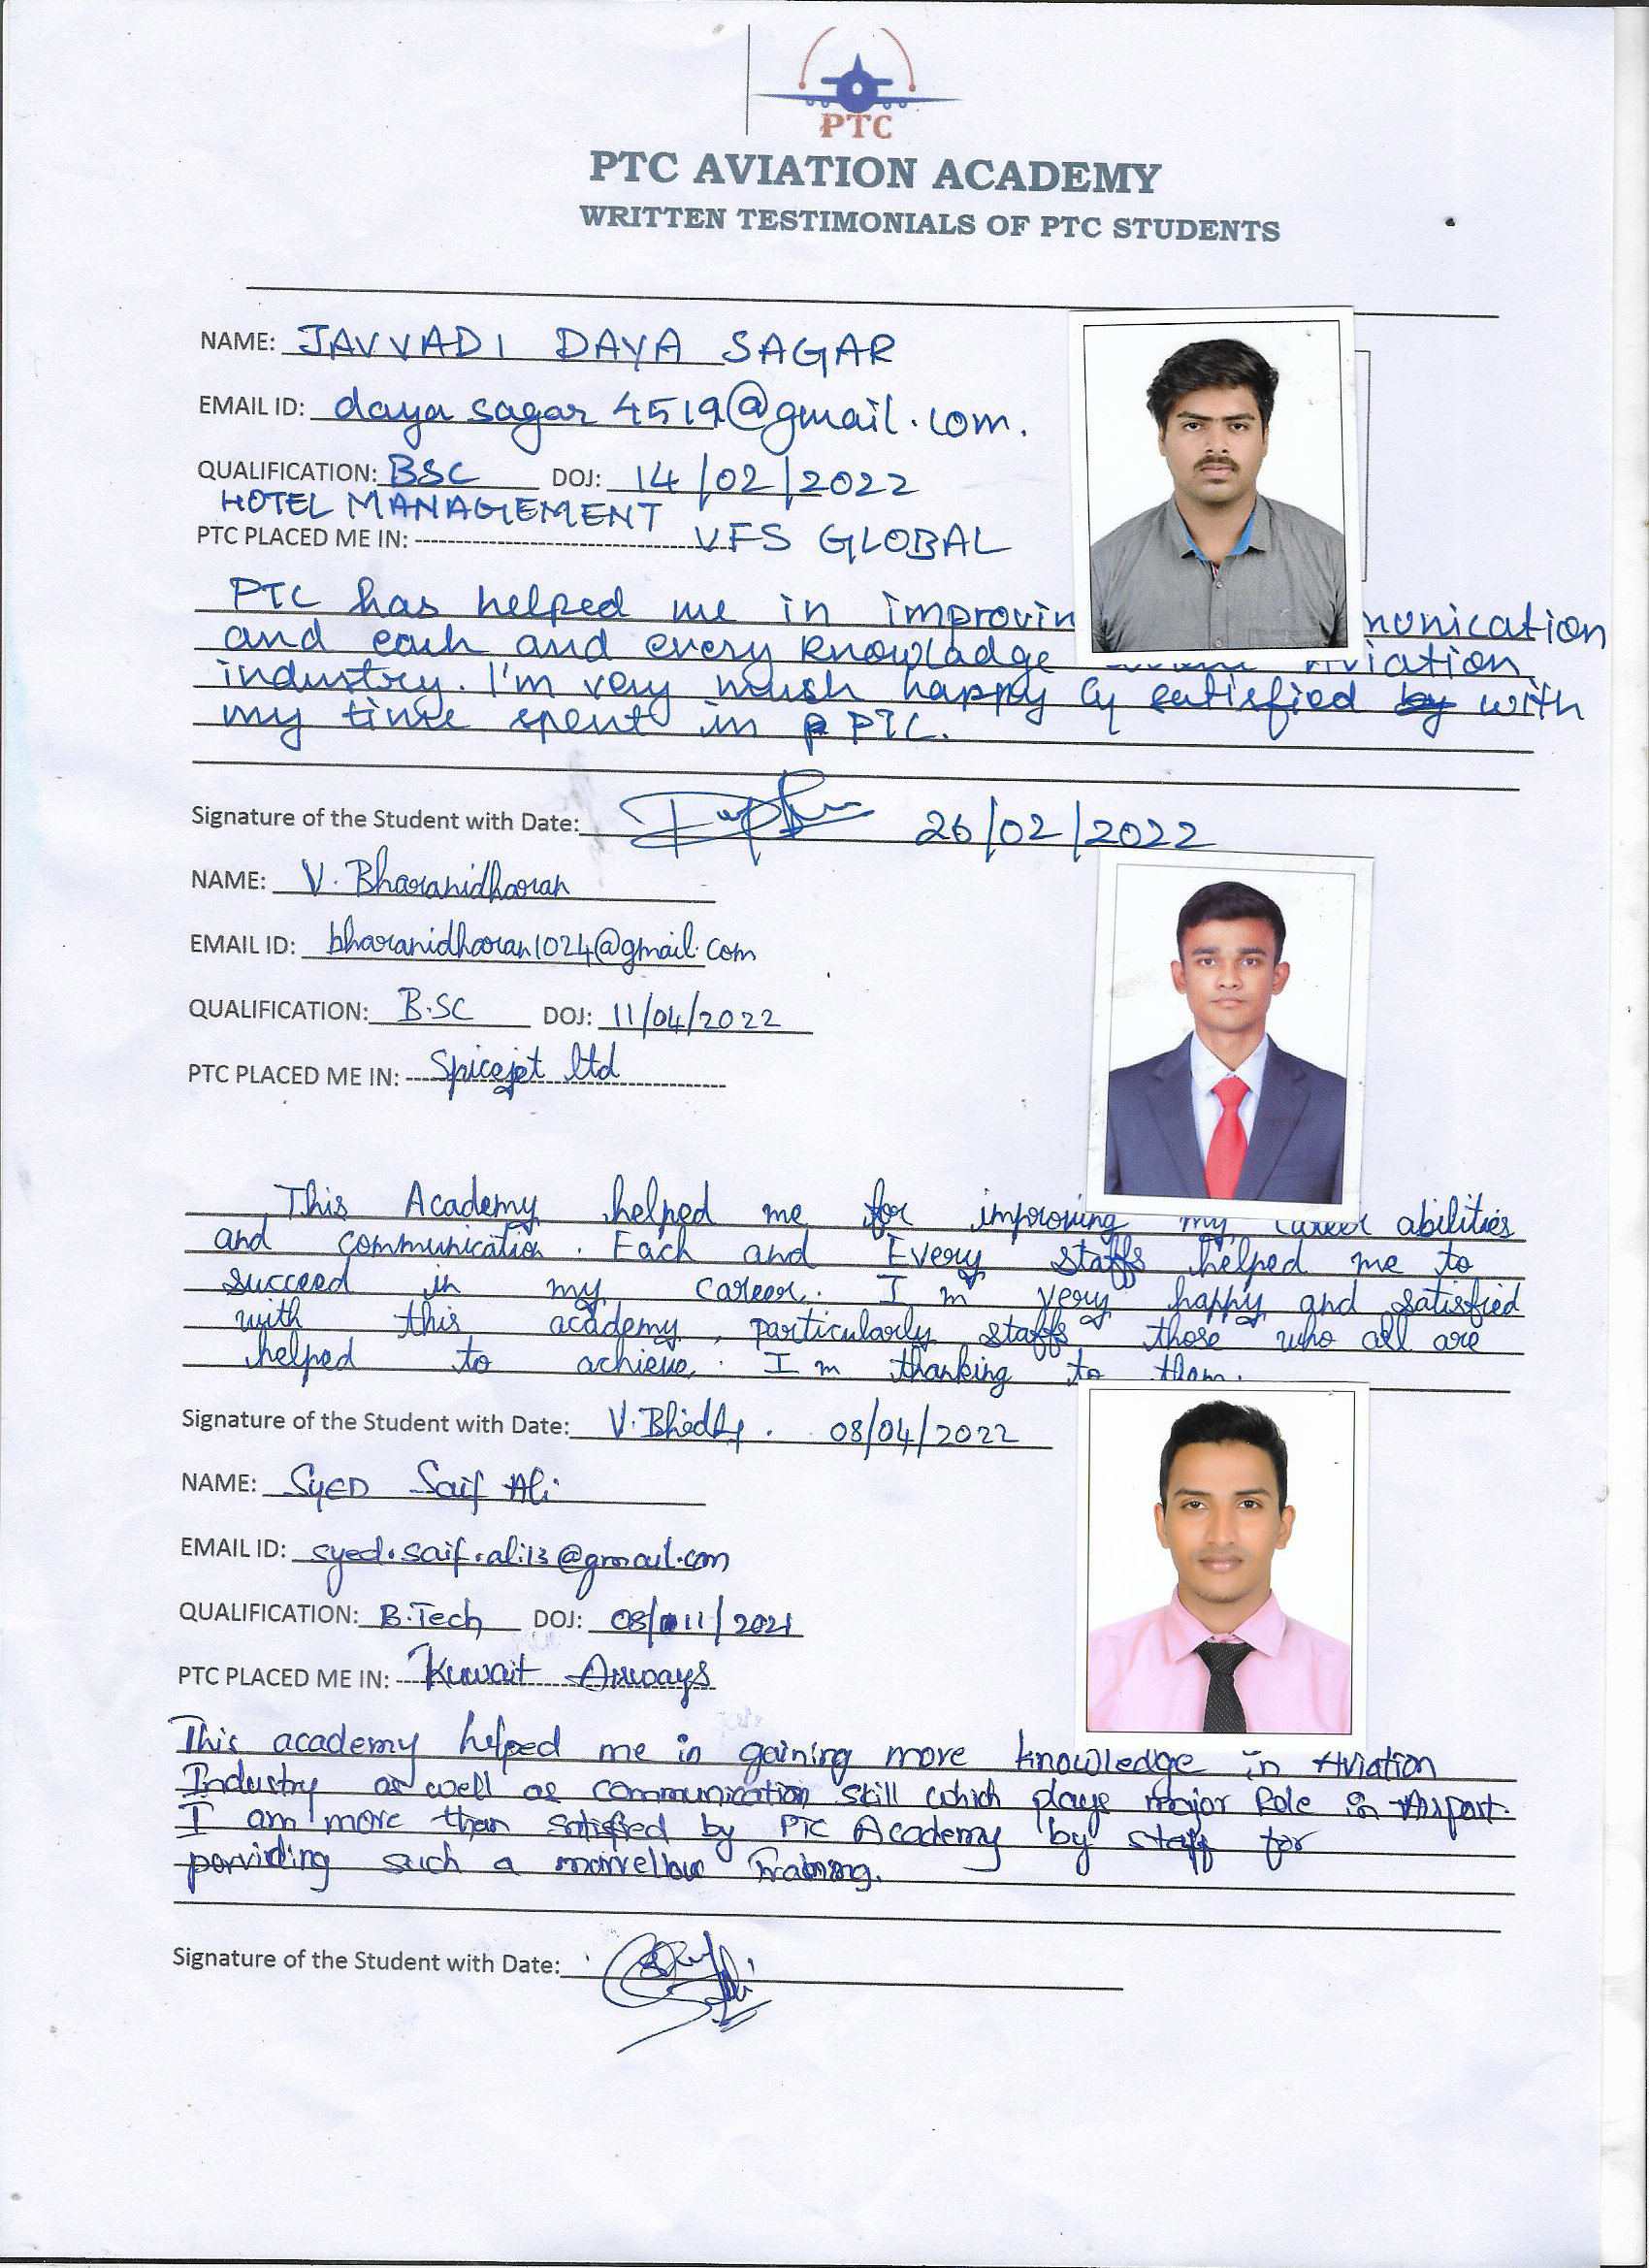 PTC
PTC AVIATION ACADEMY
WRITTEN TESTIMONIALS OF PTC STUDENTS
NAME: JAVVADI DAYA SAGAR
EMAIL ID: daya sagar 4519@gmail.com.
QUALIFICATION: BSC DOJ: 14/02/2022
HOTEL MANAGEMENT
PTC PLACED ME IN: VFS GLOBAL
PTC has helped me in improvin munication
and each and every knowladge Aviation
industry. I'm very mush happy & satisfied by with
my time spent in P PTC.
Signature of the Student with Date: 26/02/2022
NAME: V. Bharanidharan
EMAIL ID: bharanidharan1024@gmail.com
QUALIFICATION: B.SC DOJ: 11/04/2022
PTC PLACED ME IN: Spicejet ltd
This Academy helped me for improving my career abilities
and communication. Each and Every staffs helped me to
succeed in my career. I'm very happy and satisfied
with this academy, particularly staffs those who all are
helped to achieve. I'm thanking to them.
Signature of the Student with Date: 08/04/2022
NAME: Syed Saif Ali
EMAIL ID: syed.saif.ali13@gmail.com
QUALIFICATION: B.Tech DOJ: 08/11/2021
PTC PLACED ME IN: Kuwait Airways
This academy helped me in gaining more knowledge in Aviation
Industry as well as communication skill which plays major Role in Airport.
I am more than satisfied by PTC Academy by staff for
porviding such a marvellous Training.
Signature of the Student with Date: